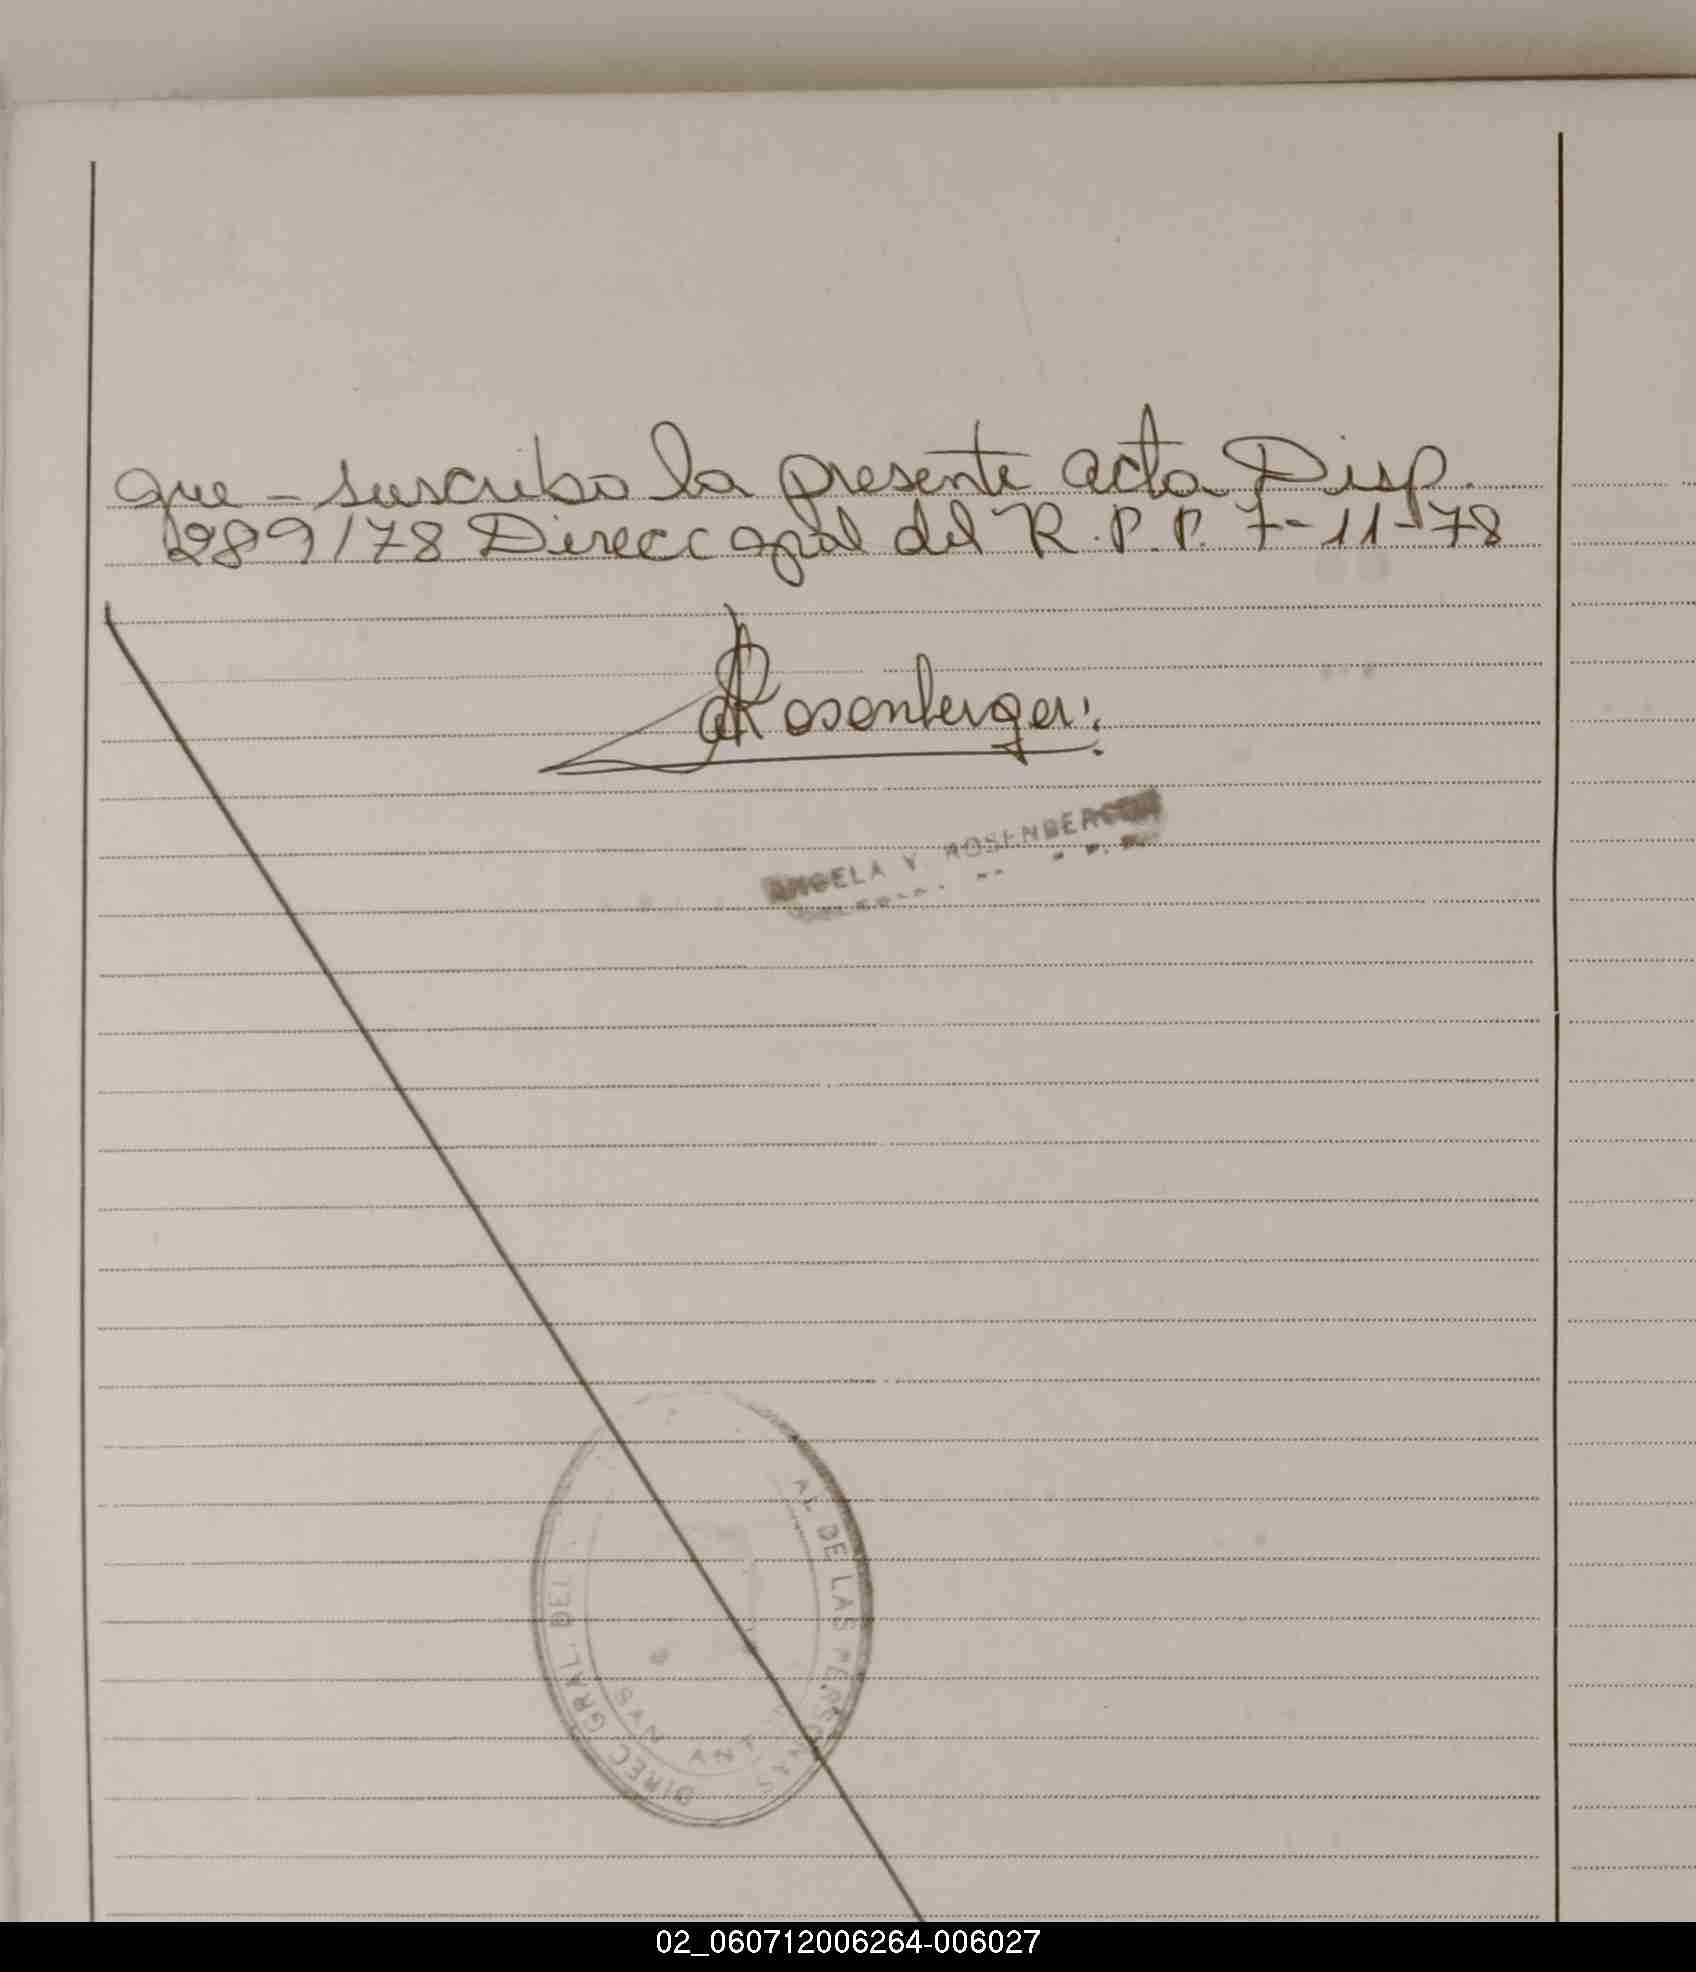 que - suscribo la presente acta Disp.
1289/78 Direcc gral del R.P.P. 7-11-78
A Rosenberger.
ANGELA Y ROSENBERGER
DIREC GRAL. DEL
AL DE LAS PERSONAS
SAN
02_060712006264-006027